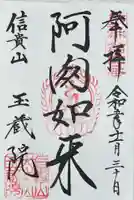 奉拝
令和元年十二月三十日
阿閦如来
信貴山
玉蔵院